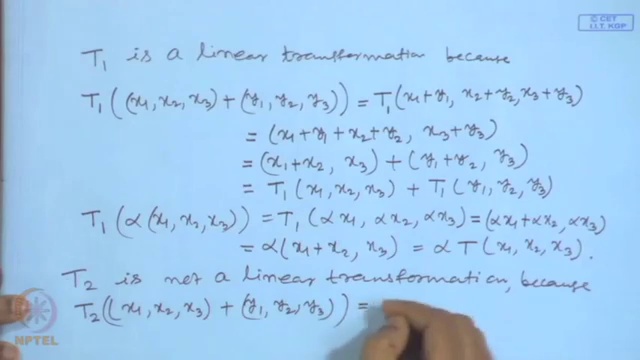 © CET
I.I.T. KGP
T₁ is a linear transformation because
T₁((x₁, x₂, x₃) + (y₁, y₂, y₃)) = T₁(x₁+y₁, x₂+y₂, x₃+y₃)
= (x₁+y₁+x₂+y₂, x₃+y₃)
= (x₁+x₂, x₃) + (y₁+y₂, y₃)
= T₁(x₁, x₂, x₃) + T₁(y₁, y₂, y₃)
T₁(α(x₁, x₂, x₃)) = T₁(αx₁, αx₂, αx₃) = (αx₁+αx₂, αx₃)
= α(x₁+x₂, x₃) = αT(x₁, x₂, x₃).
T₂ is not a linear transformation, because
T₂((x₁, x₂, x₃) + (y₁, y₂, y₃)) =
NPTEL